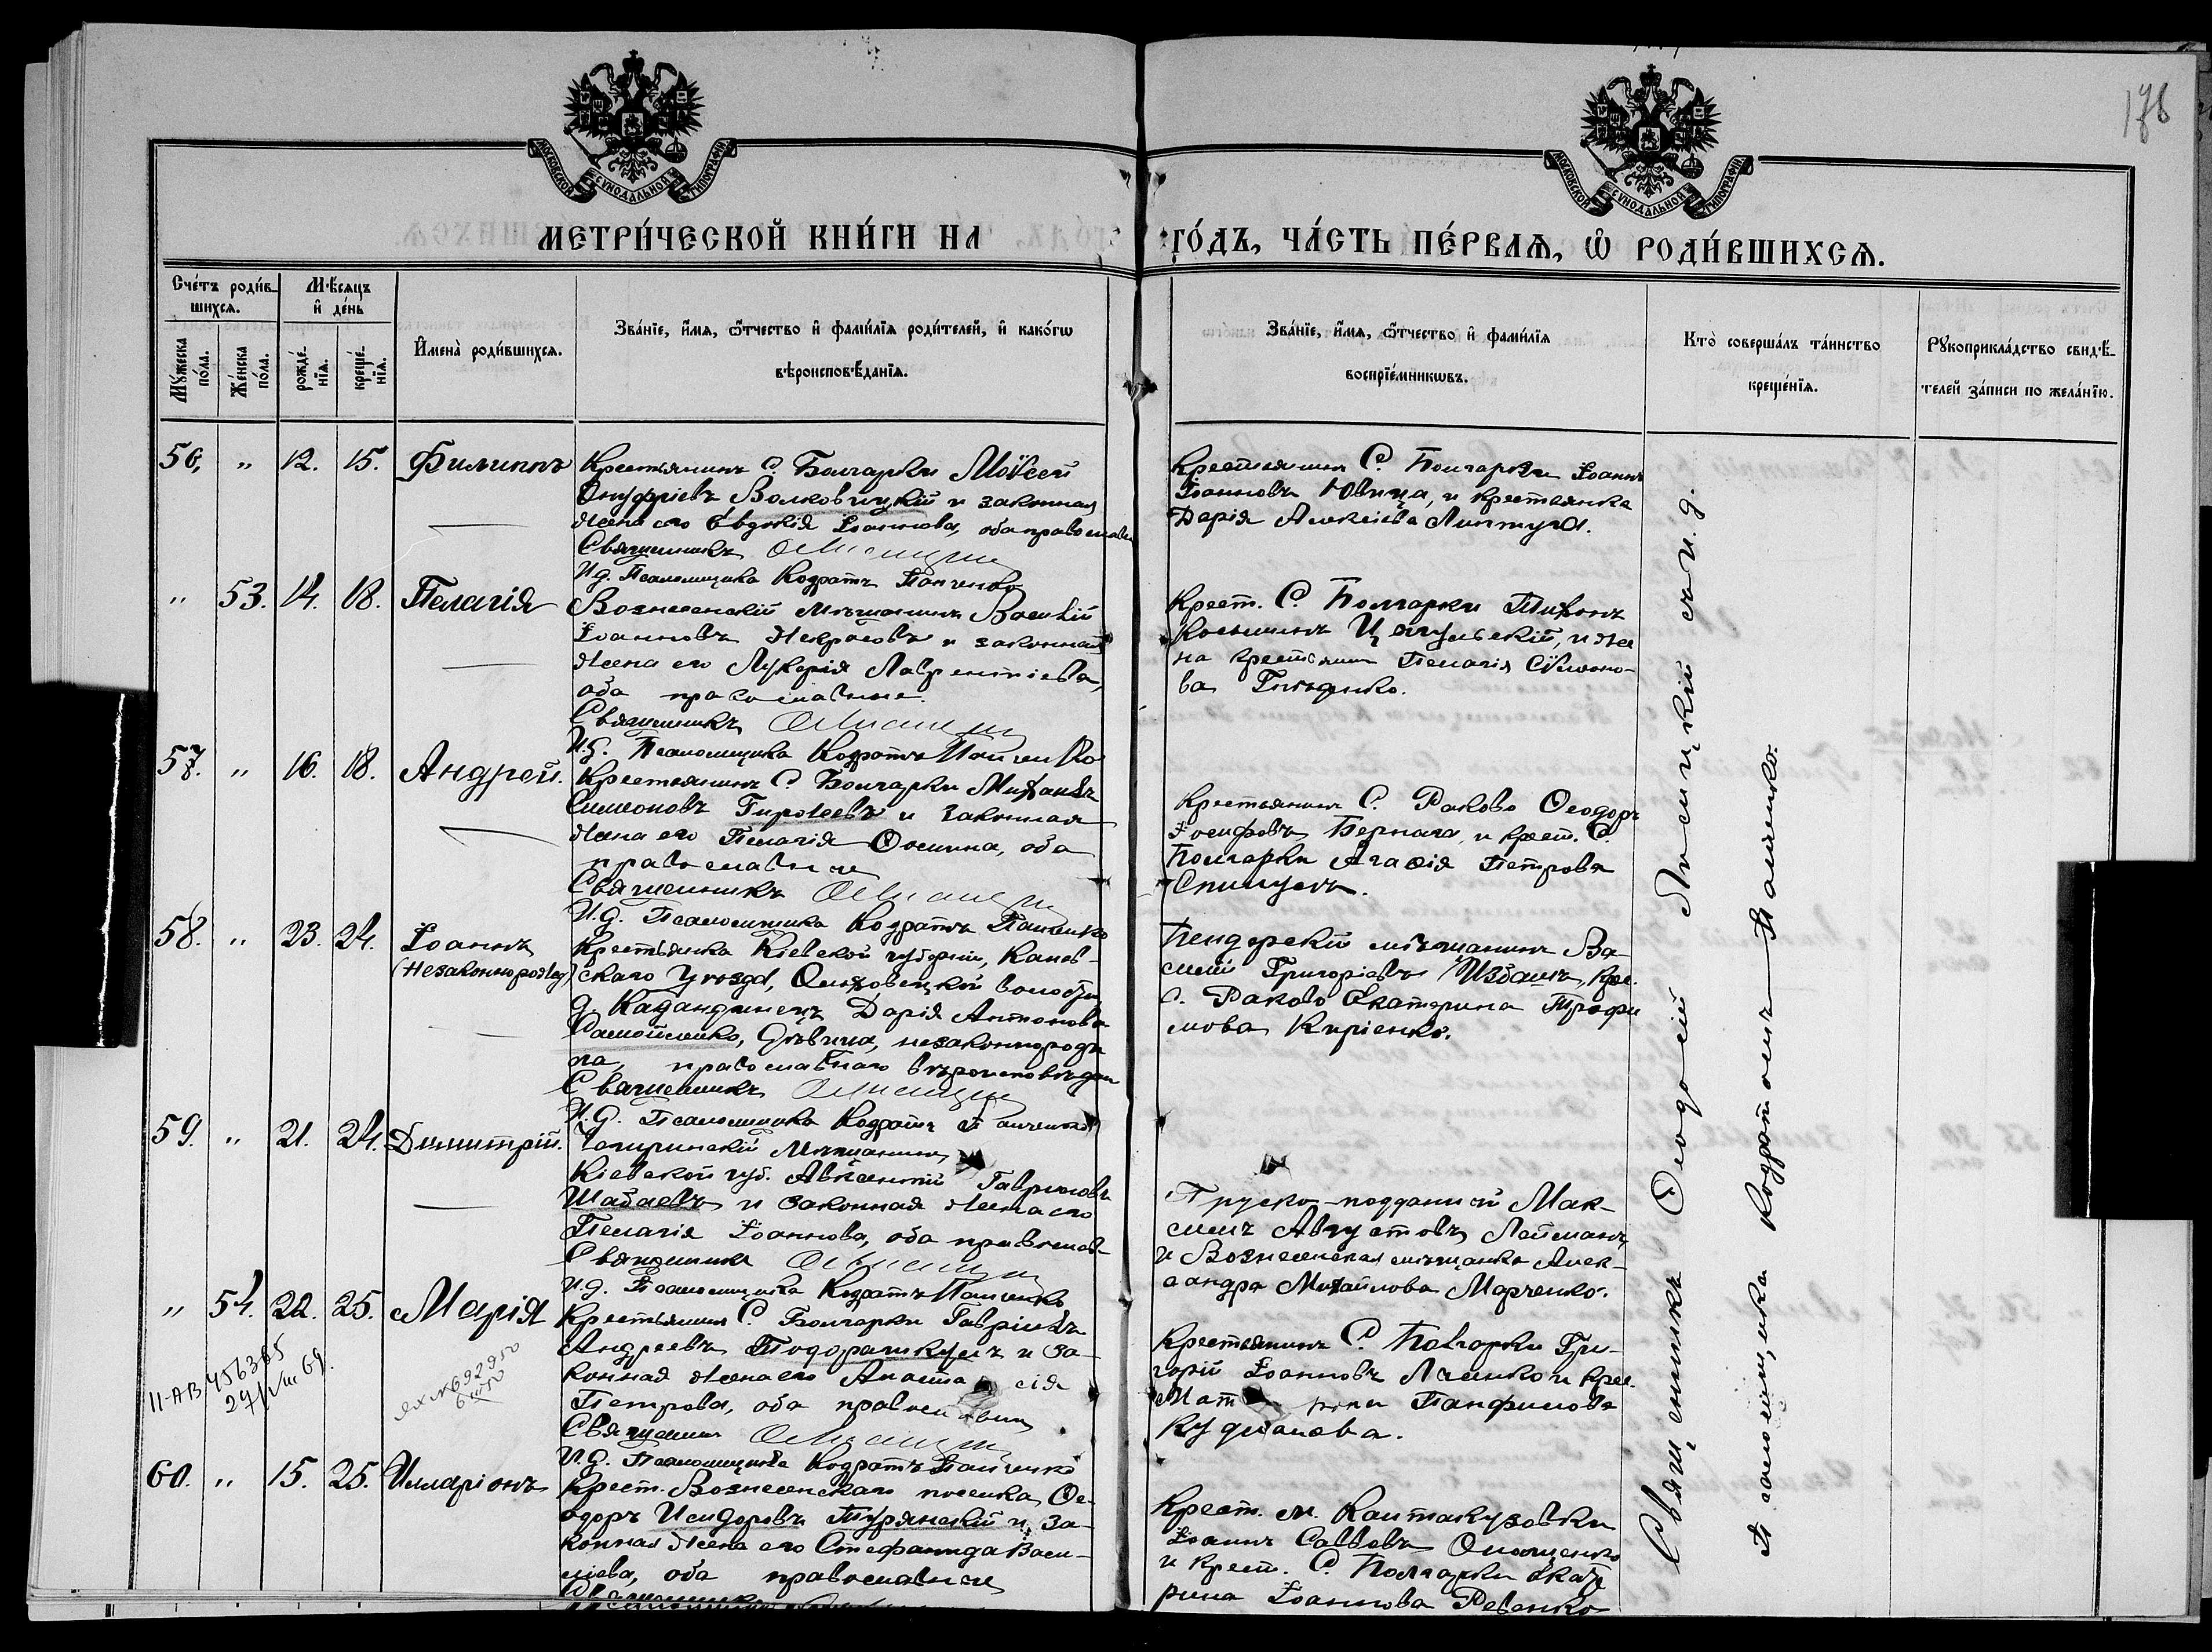 178
МОСКОВСКОЙ СѴНОДАЛЬНОЙ ТИПОГРАФІИ
МОСКОВСКОЙ СѴНОДАЛЬНОЙ ТИПОГРАФІИ
МЕТРИ́ЧЕСКОЙ КНИ́ГИ НА
ГО́ДЪ, ЧА́СТЬ ПЕ́РВАѦ, Ѡ҆ РОДИ́ВШИХСѦ.
Сче́тъ роди́в-
шихсѧ.
Мѣ́сѧцъ
и҆ де́нь
Мꙋ́жеска
по́ла.
Же́нска
по́ла.
рожде́-
нїѧ.
креще́-
нїѧ.
И҆мена̀ роди́вшихсѧ.
Зва́нїе, и҆́мѧ, ѻ҆́тчество и҆ фами́лїѧ роди́телей, и҆ како́гѡ
вѣроисповѣ́данїѧ.
Зва́нїе, и҆́мѧ, ѻ҆́тчество и҆ фами́лїѧ
воспрїе́мникѡвъ.
Кто̀ соверша́лъ та́инство
креще́нїѧ.
Рꙋкоприкла́дство свидѣ́-
телей за́писи по жела́нїю.
56. " 12. 15. Филиппъ
Крестьянинъ С. Болгарки Моѵсей
Онуфріевъ Волковицкій и законная
жена его Евдокія Іоаннова, оба православн
Священникъ
И.д. Псаломщика Кодратъ Панченко
Крестьянинъ С. Болгарки Іоаннъ
Іоанновъ Ювица, и крестьянка
Дарія Алексіева
" 53. 14. 18. Пелагія
Вознесенскій мѣщанинъ Василій
Іоанновъ Некрасовъ и законная
жена его Лукерія Лаврентіева,
оба православные.
Священникъ
И.д. Псаломщика Кодратъ Панченко
Крест. С. Болгарки Тихонъ
Косьминъ и же
на крестьянин Пелагія Сѵмоно-
ва
57. " 16. 18. Андрей.
Крестьянинъ С. Болгарки Михаилъ
Симеоновъ и законная
жена его Пелагія Осипова, оба
православные
Священникъ
И.д. Псаломщика Кодратъ Панченко
Крестьянинъ С. Раково Ѳеодоръ
Іосифовъ и крест. С.
Болгарки Агафія Петрова
58. " 23. 24. Іоаннъ
(Незаконнорожд)
Крестьянка Кіевской губерніи, Канев-
скаго уѣзда, волости
д. Дарія Антонова
Самойленко, дѣвица, незаконнорож
православнаго вѣроисповѣдан
Священникъ
И.д. Псаломщика Кодратъ Панченко
Бендерскій мѣщанинъ Ва-
силій Григоріевъ Избашъ, крес.
С. Раково Екатерина Трофи
мова Киріенко.
59. " 21. 24. Димитрій.
Чигиринскій мѣщанинъ
Кіевской губ. Авксентій Гавриловъ
Шабаевъ и законная жена его
Пелагія Іоаннова, оба православ-
Священникъ
И.д. Псаломщика Кодратъ Панченко
Пруско-подданный Мак-
Августовъ Лейманъ
и Вознесенская мѣщанка Алек-
сандра Михайлова Марченко.
" 54. 22. 25. Марія
Крестьянинъ С. Болгарки Гавріилъ
Андреевъ Тодорашкулъ и за-
конная жена его Анаста сія
Петрова, оба православн
Священникъ
И.д. Псаломщика Кодратъ Панченко
Крестьянинъ С. Болгарки Гри-
горій Іоанновъ и крес.
Мат рона Панфилова
II-АВ 456385
60. " 15. 25. Илларіонъ
Крест. Вознесенскаго поселка Ѳе-
одоръ Исидоровъ Турянскій и за-
конная жена его Стефанида Васи-
ліева, оба православные
Священникъ
Крест. м. Кантакузовки
Іоаннъ Савовъ Онощенко
и крест. С. Болгарки Екате
рина Іоаннова Ревенко
Священникъ Ѳеодосій Лисицкій
Псаломщика Кодратъ Панченко.